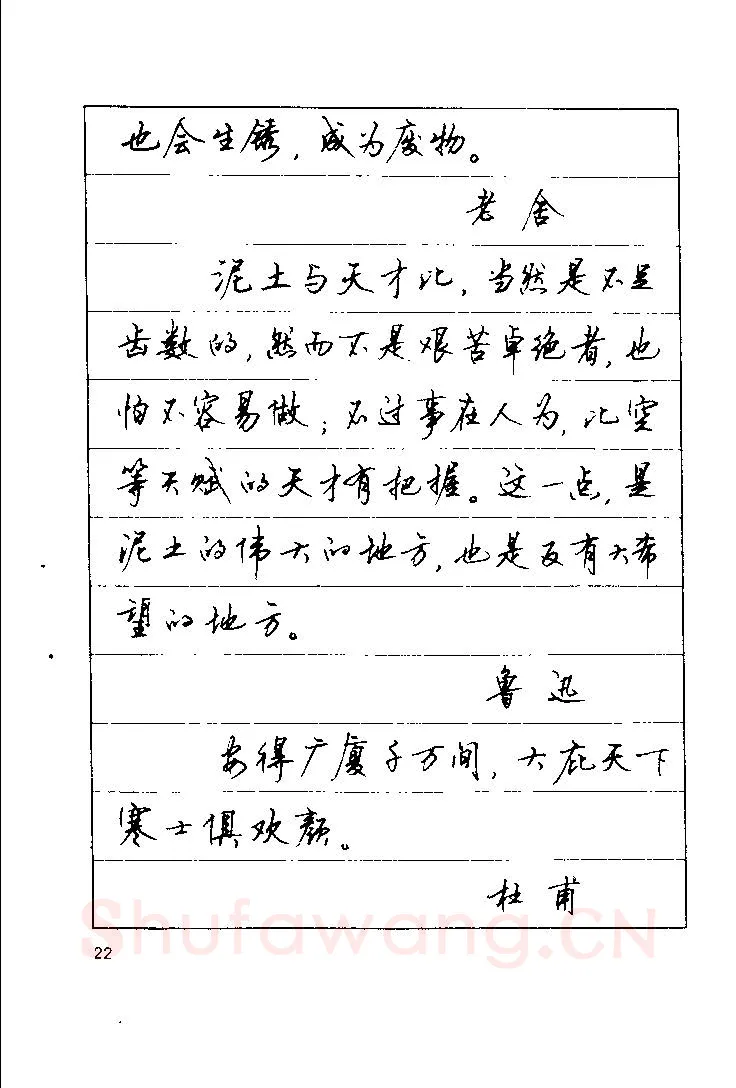 也会生锈，成为废物。
老舍
泥土与天才比，当然是不足
齿数的，然而不是艰苦卓绝者，也
怕不容易做；不过事在人为，比空
等天赋的天才有把握。这一点，是
泥土的伟大的地方，也是反有大希
望的地方。
鲁迅
安得广厦千万间，大庇天下
寒士俱欢颜。
杜甫
Shufawang.CN
22